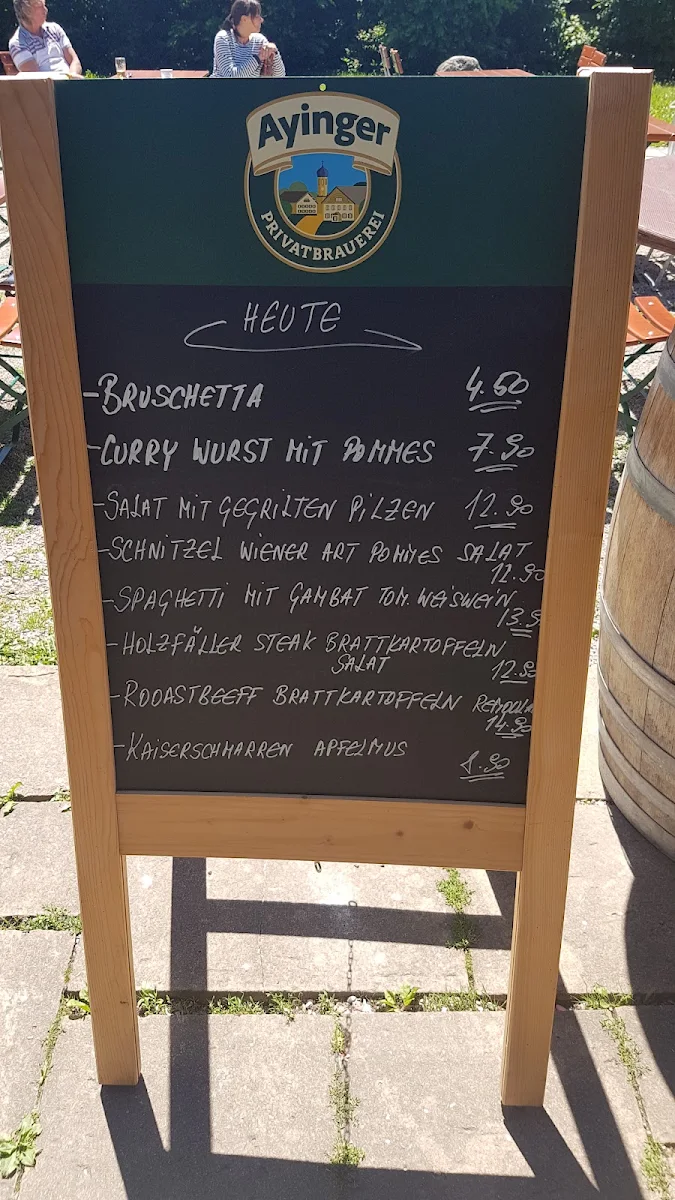 Ayinger
PRIVATBRAUEREI
HEUTE
-BRUSCHETTA 4.60
-CURRY WURST MIT POMMES 7.90
-SALAT MIT GEGRILTEN PILZEN 12.90
-SCHNITZEL WIENER ART POMMES SALAT
12.90
-SPAGHETTI MIT GAMBAT TOM. WEISWEIN
13.9
-HOLZFÄLLER STEAK BRATTKARTOFFELN
SALAT 12.90
-ROOASTBEEFF BRATTKARTOFFELN
14.90
-KAISERSCHMARREN APFELMUS
8.90